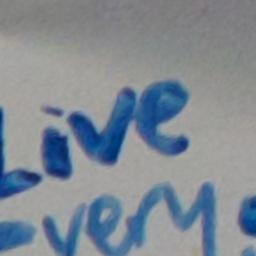 Live
Every